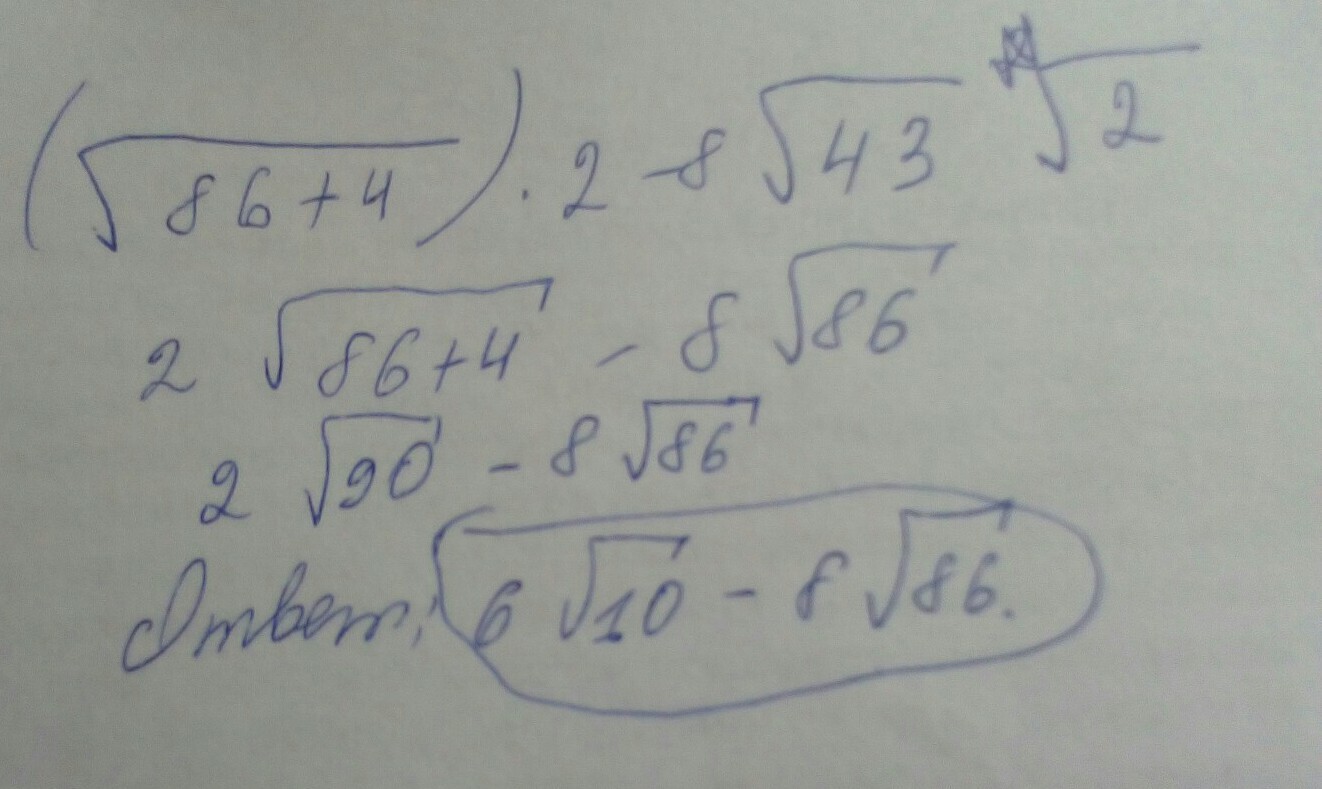 (√86+4) · 2 - 8 √43 √2
2 √86+4 - 8 √86
2 √90 - 8 √86
Ответ: 6 √10 - 8 √86.